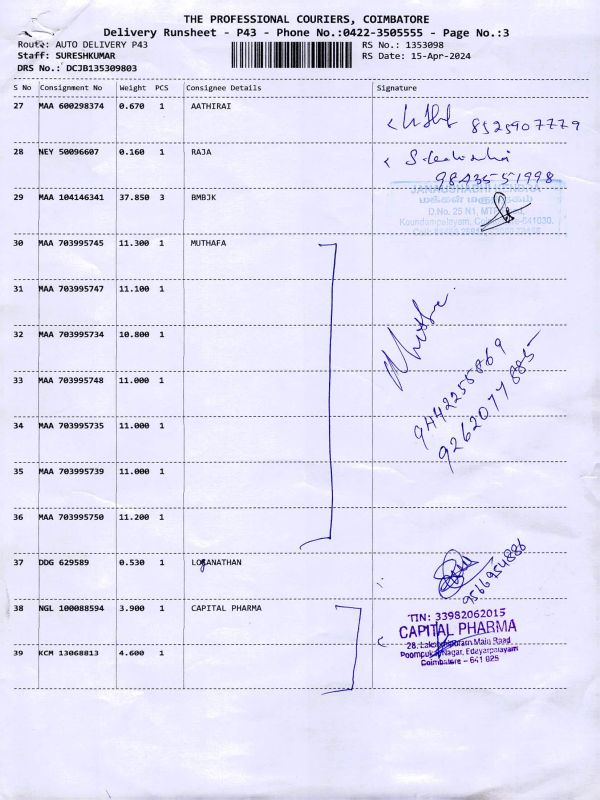 THE PROFESSIONAL COURIERS, COIMBATORE
Delivery Runsheet - P43 - Phone No.:0422-3505555 - Page No.:3
Route: AUTO DELIVERY P43 RS No.: 1353098
Staff: SURESHKUMAR RS Date: 15-Apr-2024
DRS No.: DCJB135309803
S No Consignment No Weight PCS Consignee Details Signature
27 MAA 600298374 0.670 1 AATHIRAI
8525907779
28 NEY 50096607 0.160 1 RAJA
9843551998
29 MAA 104146341 37.850 3 BMBJK
JANAUSHADHI KENDRA
மக்கள் மருந்தகம்
D.No. 25 N1, MTP
Koundampalayam, 641030.
30 MAA 703995745 11.300 1 MUTHAFA
31 MAA 703995747 11.100 1
32 MAA 703995734 10.800 1
33 MAA 703995748 11.000 1
9442255869
9262077885
34 MAA 703995735 11.000 1
35 MAA 703995739 11.000 1
36 MAA 703995750 11.200 1
37 DDG 629589 0.530 1 LOGANATHAN
9566954886
38 NGL 100088594 3.900 1 CAPITAL PHARMA
TIN: 33982062015
CAPITAL PHARMA
28, Main Road
Nagar, Edayarpalayam
Coimbatore - 641 025
39 KCM 13068813 4.600 1